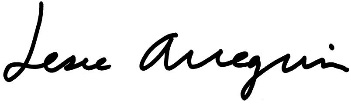 Jesse Arreguin